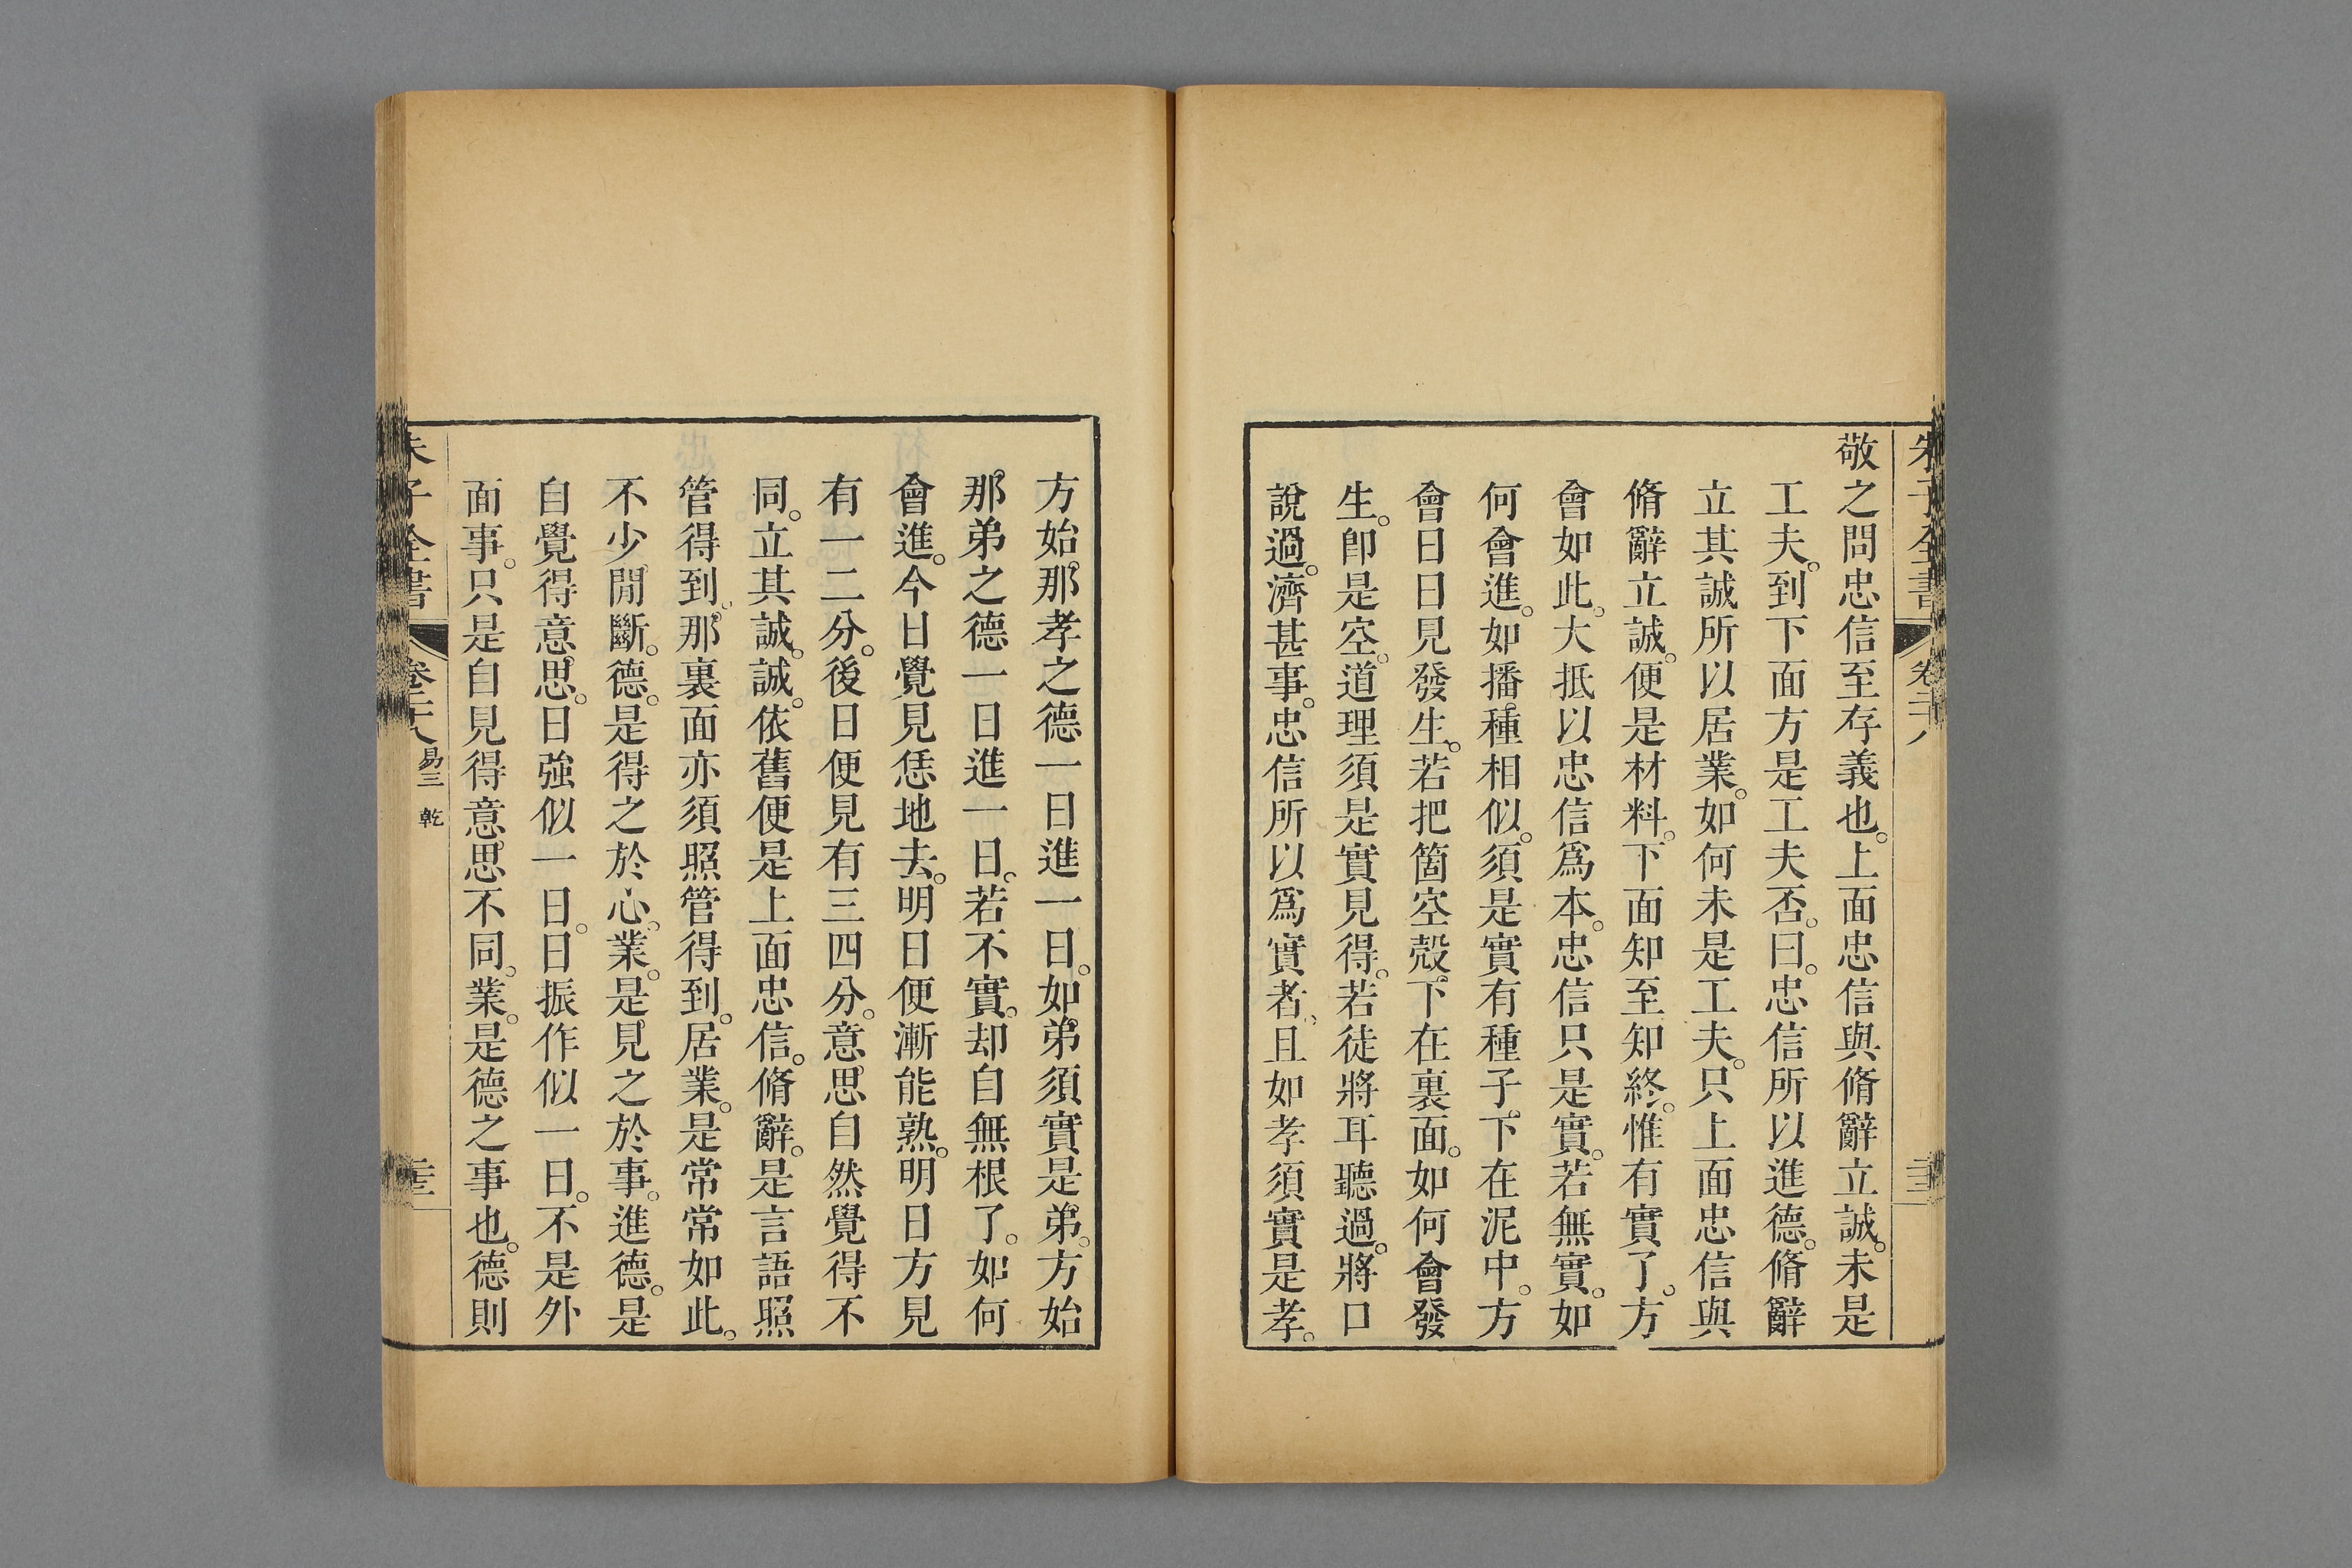 敬之問忠信至存義也。上面忠信與脩辭立誠。未是
工夫。到下面方是工夫否。曰。忠信所以進德。脩辭
立其誠所以居業。如何未是工夫。只上面忠信與
脩辭立誠。便是材料。下面知至知終。惟有實了。方
會如此。大抵以忠信爲本。忠信只是實。若無實。如
何會進。如播種相似。須是實有種子。下在泥中。方
會日日見發生。若把箇空殼下在裏面。如何會發
生。卽是空。道理須是實見得。若徒將耳聽過。將口
說過。濟甚事。忠信所以爲實者。且如孝須實是孝。
方始那孝之德一日進一日。如弟須實是弟。方始
那弟之德一日進一日。若不實。却自無根了。如何
會進。今日覺見恁地去。明日便漸能熟。明日方見
有一二分。後日便見有三四分。意思自然覺得不
同。立其誠。誠。依舊便是上面忠信。脩辭。是言語照
管得到。那裏面亦須照管得到。居業。是常常如此。
不少閒斷。德。是得之於心。業。是見之於事。進德。是
自覺得意思。日強似一日。日振作似一日。不是外
面事。只是自見得意思不同。業。是德之事也。德則
朱子全書
易三 乾